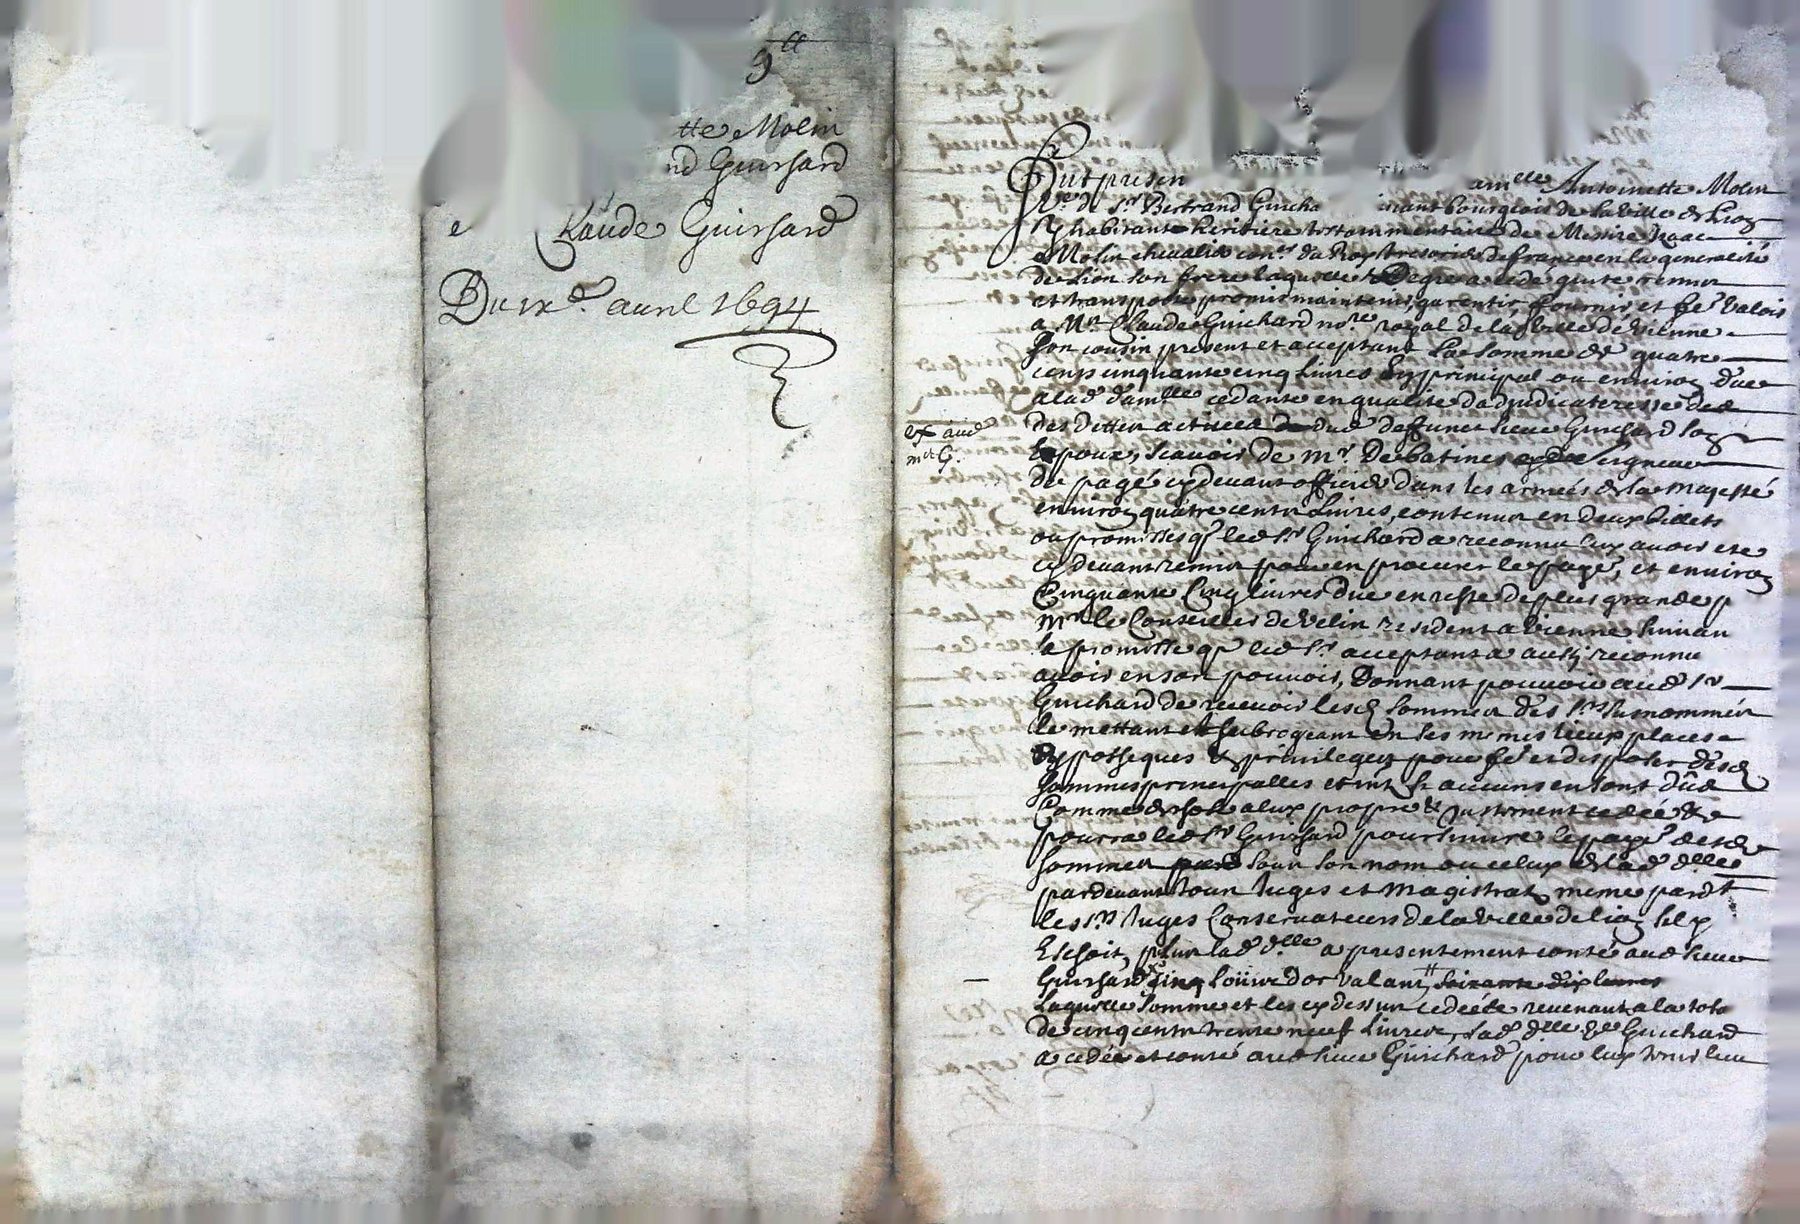 9tt
tte Molin
nd Guichard
e Claude Guichard
Du ixe. avril 1694
Fut presen amelle Antoinette Molin
Ve. de Sr. Bertrand Guicha vivant bourgeois de la ville de Lion
Y habitante heritiere testammentaire de Messire Isaac
Molin chevalier conr. du Roy tresorier de france en la generalité
de Lion son frere laquelle de gre a cedé quitte remis
et transporte promis maintenir, garentir, fournir et fe. valoir
a Mre Claude Guichard nore. royal de la ville de Vienne
son cousin present et acceptant la somme de quatre
cents cinquante cinq livres en principal ou environ deue
a lad. damlle cedante en qualité dadjudicateresse de
des dettes actives dud. deffunct sieur Guichard son
Epoux, scavoir de mr. De batines seigneur
de pagé cy devant officier dans les armées de sa majesté
environ quatre cents livres, contenus en deux billets
ou promesses q. led. sr. Guichard a reconnu luy avoir ete
cy devant remis pour en procurer le paye., et environ
Cinquante Cinq livres due en reste de plus grande p
mr. le Conseiller de Velin resident a Vienne suivan
la promesse q. led. sr. acceptant a aussy reconnu
avoir en son pouvoir, Donnant pouvoir aud. sr.
Guichard de recevoir lesd. sommes des srs. susnommés
le mettant et subrogeant en ses mêmes lieux places
hypotheques & privileges pour fe. et disposer desd.
sommes principalles et int. si aucuns en sont dûs
Comme de chose a luy propre & justement cedée &
pourra led. sr. Guichard poursuivre le paye. desd.
sommes sous son nom ou celuy de lad. dlle
pardevant tous juges et magistrats meme pardt
les srs. Juges Conservateurs de la ville de lion sil y
Eschoit, plus lad. dlle a presentement conté aud. sieur
Guichard cinq Loüis dor valant soixante dix livres
Laquelle somme et les cy dessus cedées revenant a la tote
de cinq cents trente neuf livres, lad. dlle ve Guichard
a cedée et conté aud. sieur Guichard pour luy tenir lieu